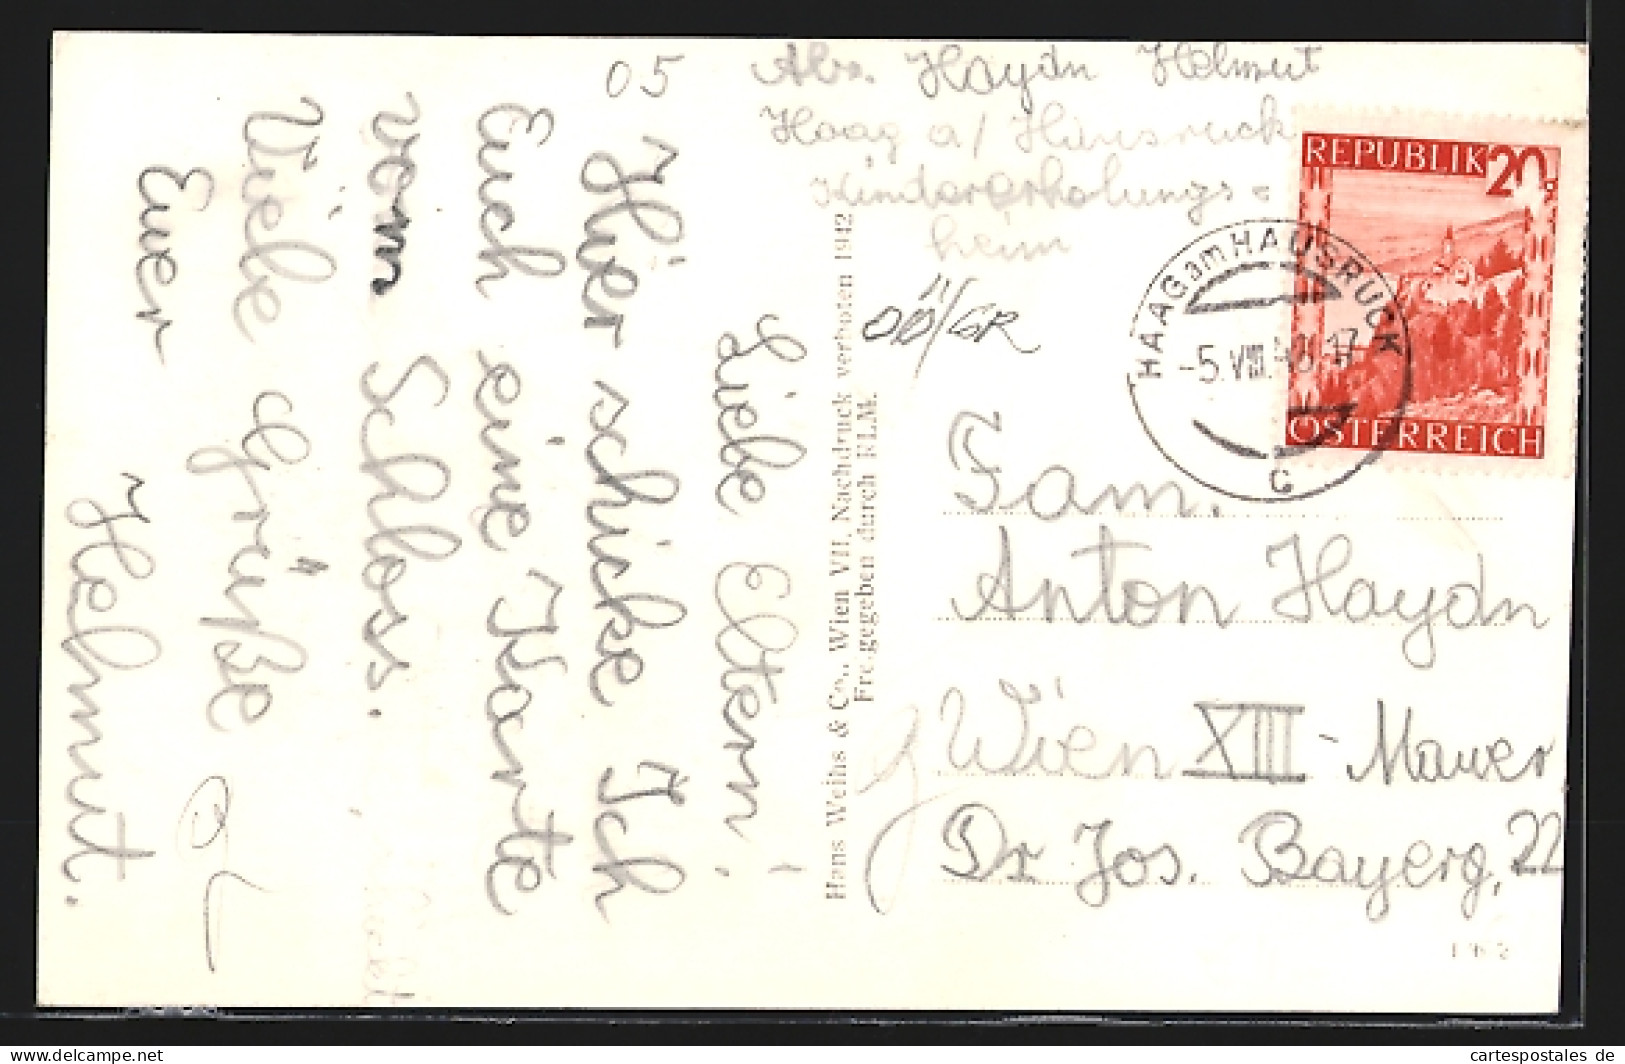 05
Abs. Haydn Helmut
Haag a/ Hausruck
Kindererholungs=
heim
OÖ/GR
REPUBLIK 20
ÖSTERREICH
HAAG am HAUSRUCK
-5.VIII.48.17
c
Liebe Eltern!
Hier schicke Ich
Euch eine Karte
vom Schloss.
Viele Grüße
Euer
Helmut.
Hans Weihs & Co., Wien VII. Nachdruck verboten 1942
Freigegeben durch RLM.
Fam.
Anton Haydn
Wien XIII - Mauer
Dr Jos. Bayerg, 22
cartespostales de
www.delcampe.net